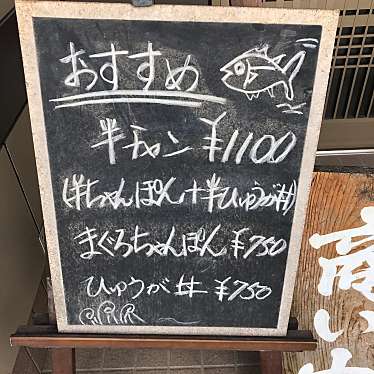 おすすめ
半チャン ¥1100
(半ちゃんぽん+半ひゅうが丼)
まぐろちゃんぽん ¥750
ひゅうが丼 ¥750
商い中